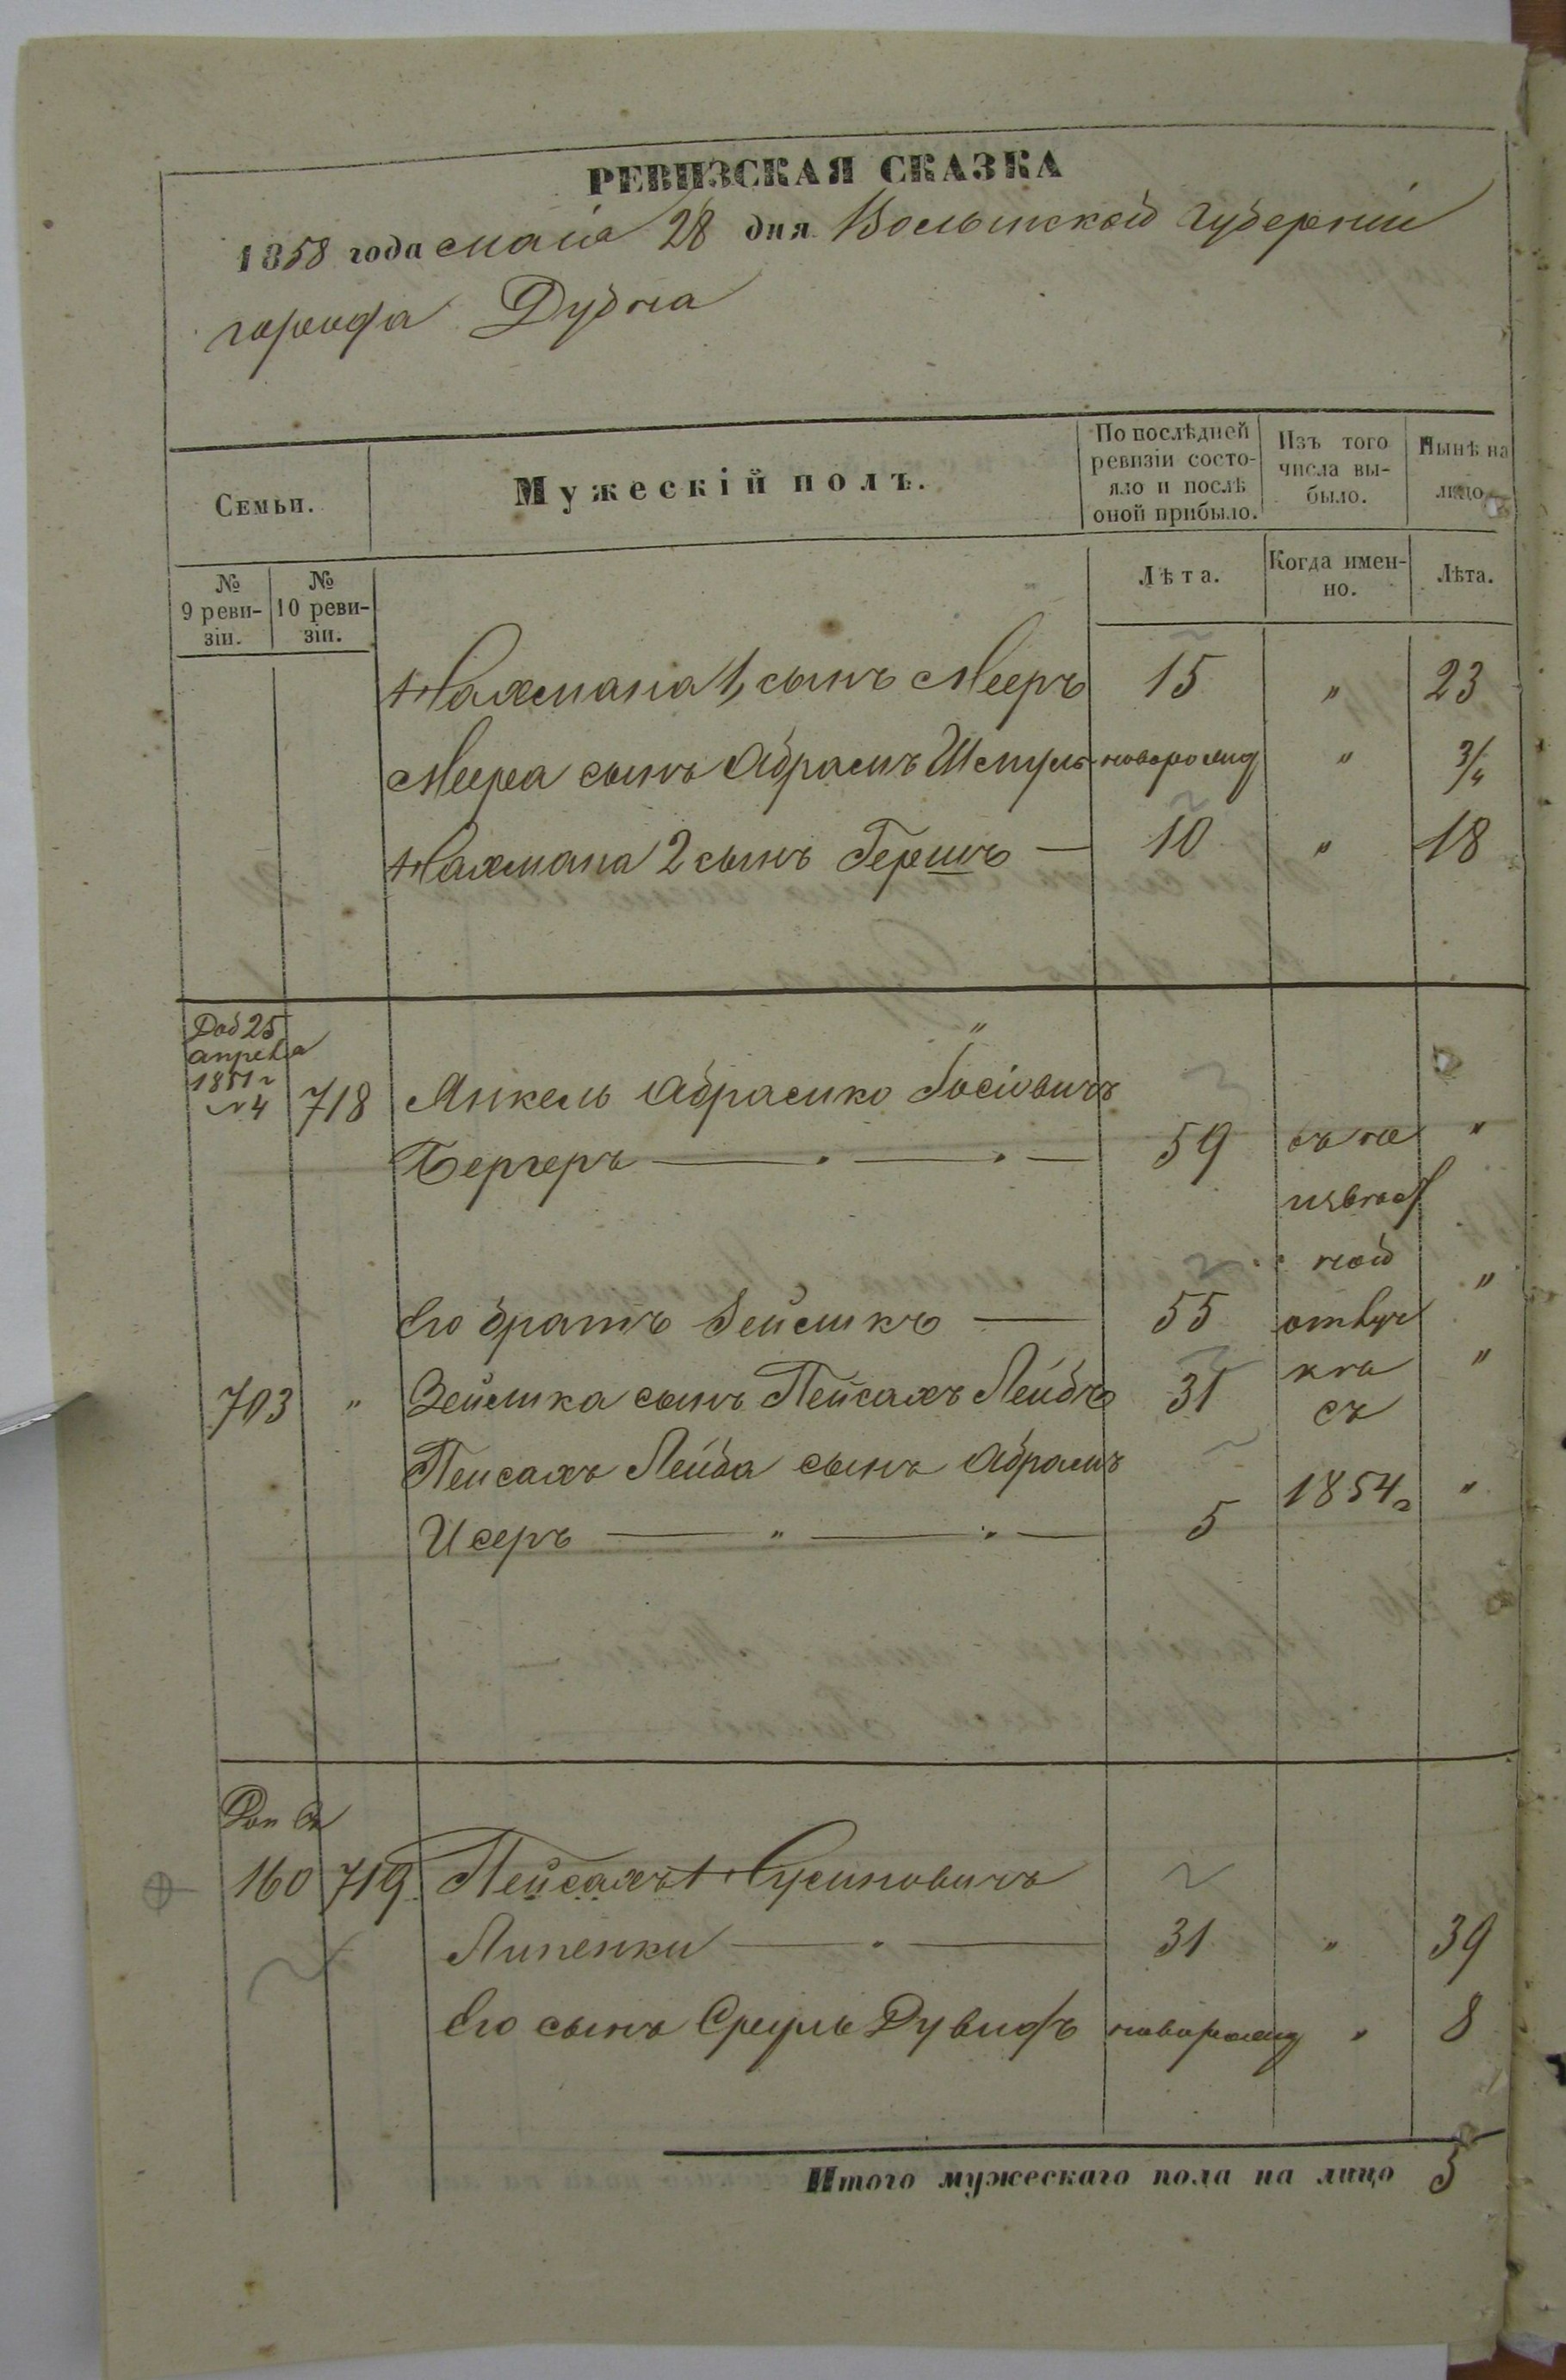 РЕВИЗСКАЯ СКАЗКА
1858 года маія 28 дня Волынской Губерніи
города Дубна
Семьи.
Мужескій полъ.
По послѣдней ревизіи состо-
яло и послѣ оной прибыло.
Изъ того числа вы-
было.
Нынѣ на лицо
№ 9 реви-
зіи.
№ 10 реви-
зіи.
Лѣта.
Когда имен-
но.
Лѣта.
Нахмана 1, сынъ Мееръ 15 " 23
Меера сынъ Абрамъ Шмуль новорожд " 3/4
Нахмана 2 сынъ Гершъ — 10 " 18
Доб 25
апреля
1851 г
№ 4 718 Янкель Абрамко Іосіовичъ
Бергеръ — 59 въ не "
извѣст
ной
Его братъ Зейликъ — 55 отлуч "
703 " Зейлика сынъ Пейсахъ Лейбъ 31 кѣ "
съ
Пейсахъ Лейба сынъ Абрамъ
Исеръ — " — " — 5 1854 г "
160 719 Пейсахъ Нусиновичъ
Липенки — 31 " 39
Его сынъ Сруль Дувидъ новорожд " 8
Итого мужескаго пола на лицо 5